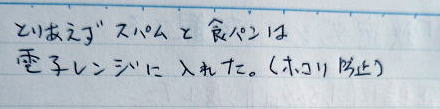 とりあえず スパムと食パンは
電子レンジに入れた。(ホコリ防止)